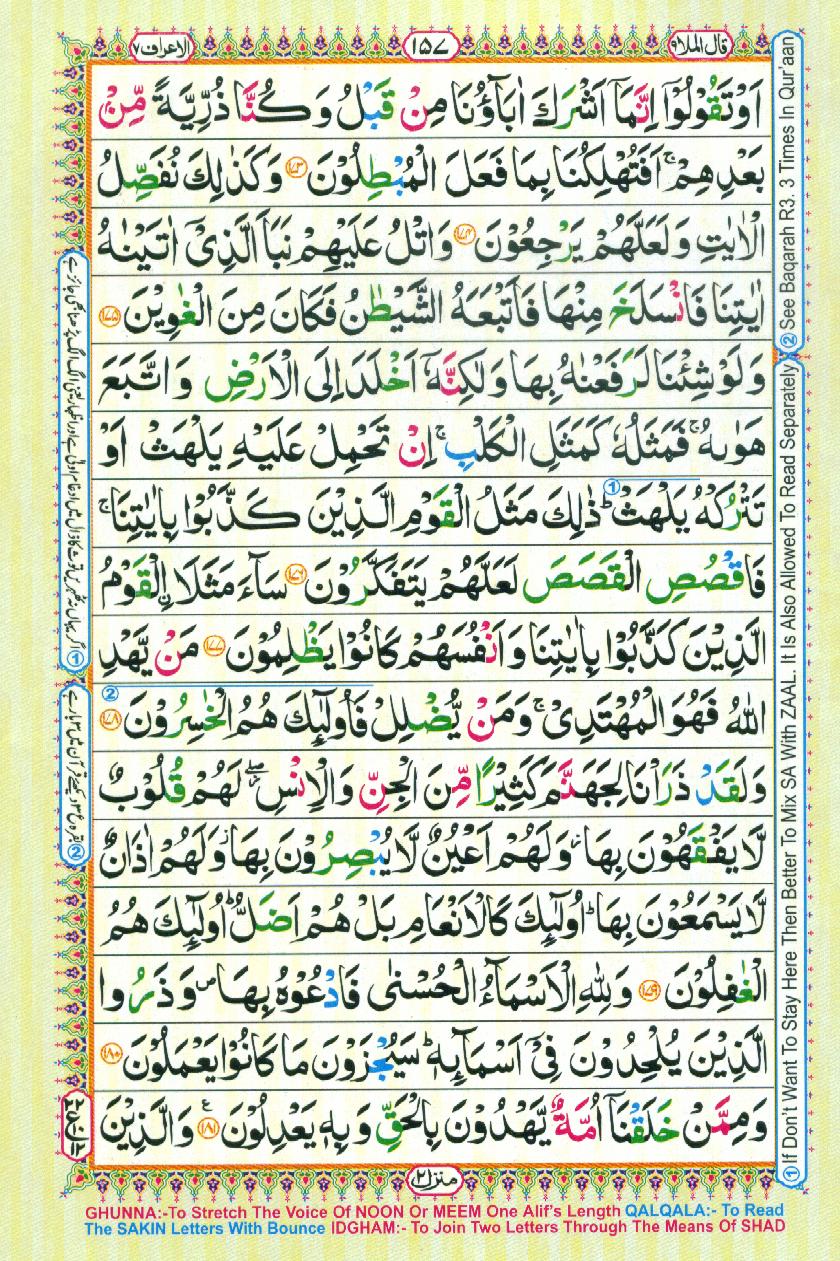 الاعراف ٧
١٥٧
قال الملا ٩
اَوْ تَقُوْلُوْۤا اِنَّمَاۤ اَشْرَكَ اٰبَآؤُنَا مِنْ قَبْلُ وَ كُنَّا ذُرِّيَّةً مِّنْۢ
بَعْدِهِمْ ۚ اَفَتُهْلِكُنَا بِمَا فَعَلَ الْمُبْطِلُوْنَ ١٧٣ وَ كَذٰلِكَ نُفَصِّلُ
الْاٰيٰتِ وَ لَعَلَّهُمْ يَرْجِعُوْنَ ١٧٤ وَ اتْلُ عَلَيْهِمْ نَبَاَ الَّذِيْۤ اٰتَيْنٰهُ
اٰيٰتِنَا فَانْسَلَخَ مِنْهَا فَاَتْبَعَهُ الشَّيْطٰنُ فَكَانَ مِنَ الْغٰوِيْنَ ١٧٥
وَ لَوْ شِئْنَا لَرَفَعْنٰهُ بِهَا وَ لٰكِنَّهٗۤ اَخْلَدَ اِلَى الْاَرْضِ وَ اتَّبَعَ
هَوٰىهُ ۚ فَمَثَلُهٗ كَمَثَلِ الْكَلْبِ ۚ اِنْ تَحْمِلْ عَلَيْهِ يَلْهَثْ اَوْ
تَتْرُكْهُ يَلْهَثْ ؕ ① ذٰلِكَ مَثَلُ الْقَوْمِ الَّذِيْنَ كَذَّبُوْا بِاٰيٰتِنَا ۚ
فَاقْصُصِ الْقَصَصَ لَعَلَّهُمْ يَتَفَكَّرُوْنَ ١٧٦ سَآءَ مَثَلَا ۨالْقَوْمُ
الَّذِيْنَ كَذَّبُوْا بِاٰيٰتِنَا وَ اَنْفُسَهُمْ كَانُوْا يَظْلِمُوْنَ ١٧٧ مَنْ يَّهْدِ
اللّٰهُ فَهُوَ الْمُهْتَدِيْ ۚ وَ مَنْ يُّضْلِلْ فَاُولٰٓئِكَ هُمُ الْخٰسِرُوْنَ ١٧٨ ②
وَ لَقَدْ ذَرَاْنَا لِجَهَنَّمَ كَثِيْرًا مِّنَ الْجِنِّ وَ الْاِنْسِ ۖ لَهُمْ قُلُوْبٌ
لَّا يَفْقَهُوْنَ بِهَا ؗ وَ لَهُمْ اَعْيُنٌ لَّا يُبْصِرُوْنَ بِهَا ؗ وَ لَهُمْ اٰذَانٌ
لَّا يَسْمَعُوْنَ بِهَا ؕ اُولٰٓئِكَ كَالْاَنْعَامِ بَلْ هُمْ اَضَلُّ ؕ اُولٰٓئِكَ هُمُ
الْغٰفِلُوْنَ ١٧٩ وَ لِلّٰهِ الْاَسْمَآءُ الْحُسْنٰى فَادْعُوْهُ بِهَا ۪ وَ ذَرُوا
الَّذِيْنَ يُلْحِدُوْنَ فِيْۤ اَسْمَآئِهٖ ؕ سَيُجْزَوْنَ مَا كَانُوْا يَعْمَلُوْنَ ١٨٠
وَ مِمَّنْ خَلَقْنَاۤ اُمَّةٌ يَّهْدُوْنَ بِالْحَقِّ وَ بِهٖ يَعْدِلُوْنَ ١٨١ ع وَ الَّذِيْنَ
منزل ٢
② See Baqarah R3. 3 Times In Qur'aan
① If Don't Want To Stay Here Then Better To Mix SA With ZAAL. It Is Also Allowed To Read Separately
GHUNNA:-To Stretch The Voice Of NOON Or MEEM One Alif's Length QALQALA:- To Read
The SAKIN Letters With Bounce IDGHAM:- To Join Two Letters Through The Means Of SHAD